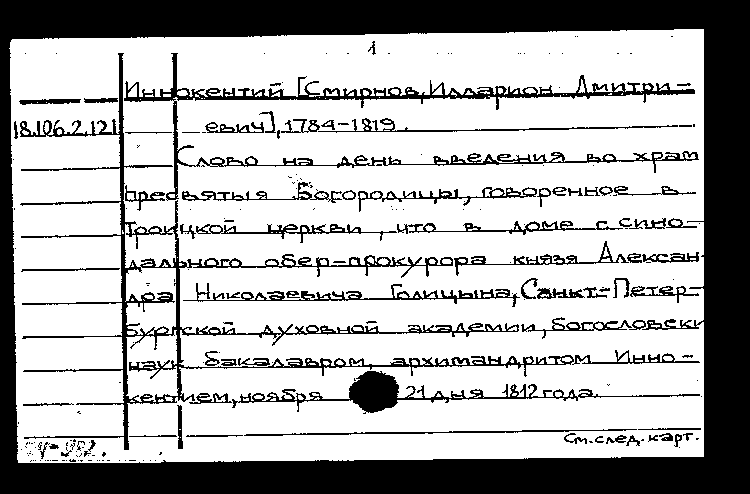 1
Иннокентий [Смирнов, Илларион Дмитри-
18.106.2.121 евич], 1784-1819.
Слово на день введения во храм
пресвятыя Богородицы, говоренное в
Троицкой церкви, что в доме г. сино-
дального обер-прокурора князя Алексан-
дра Николаевича Голицына, Санкт-Петер-
бургской духовной академии, богословски
наук бакалавром, архимандритом Инно-
кентием, ноября 21 дня 1812 года.
См. след. карт.